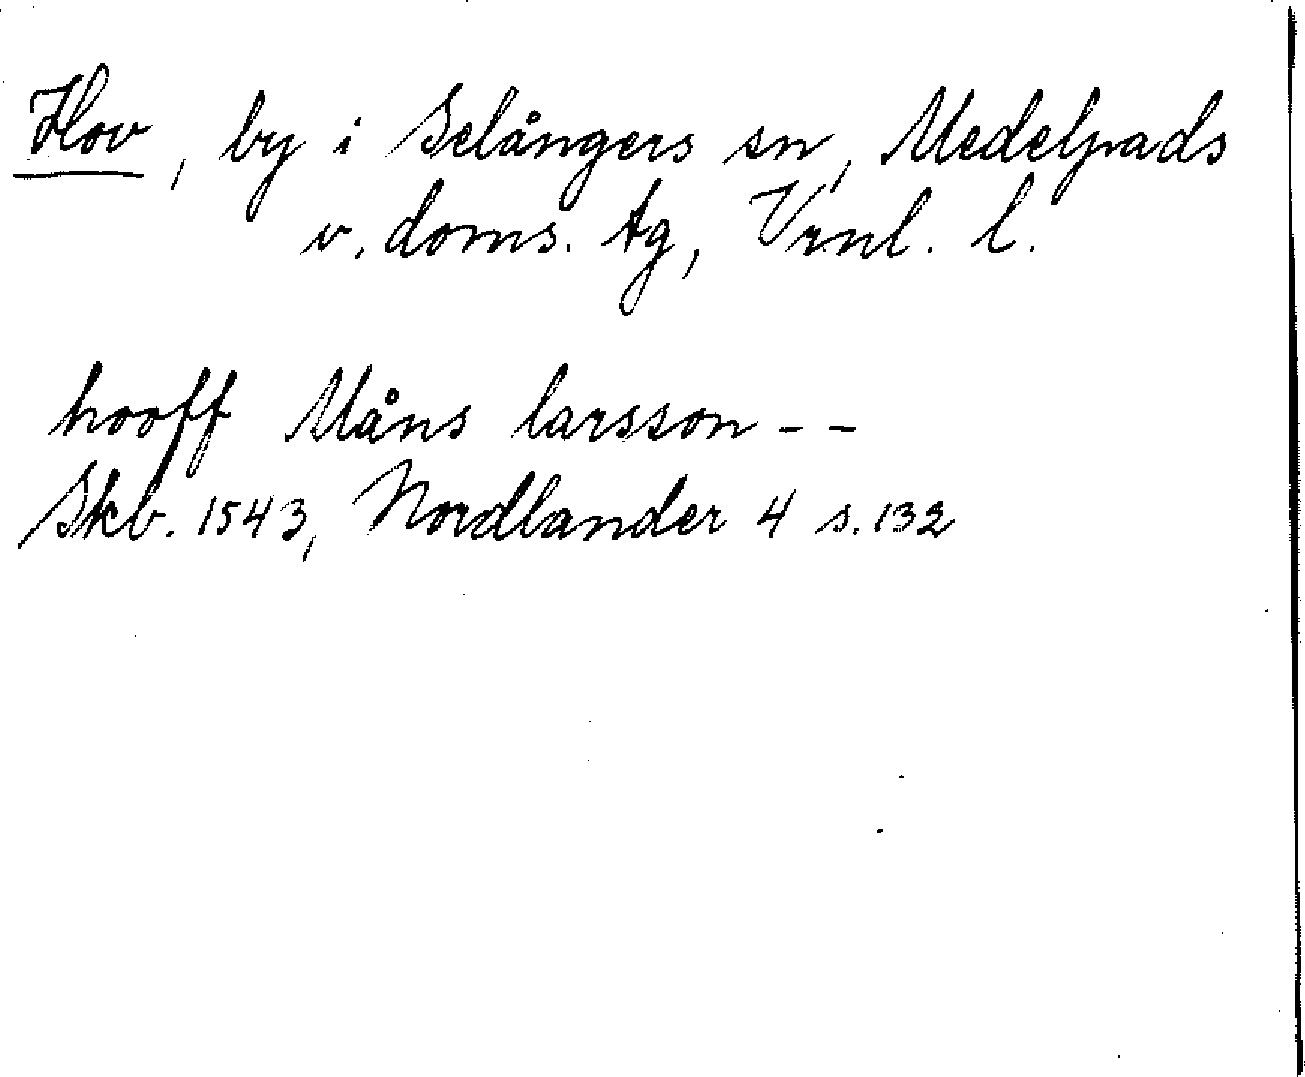 Hov, by i Selångers sn, Medelpads
v. doms. tg, Vrnl. l.
hooff Måns larsson - -
Skb. 1543, Nordlander 4 s. 132